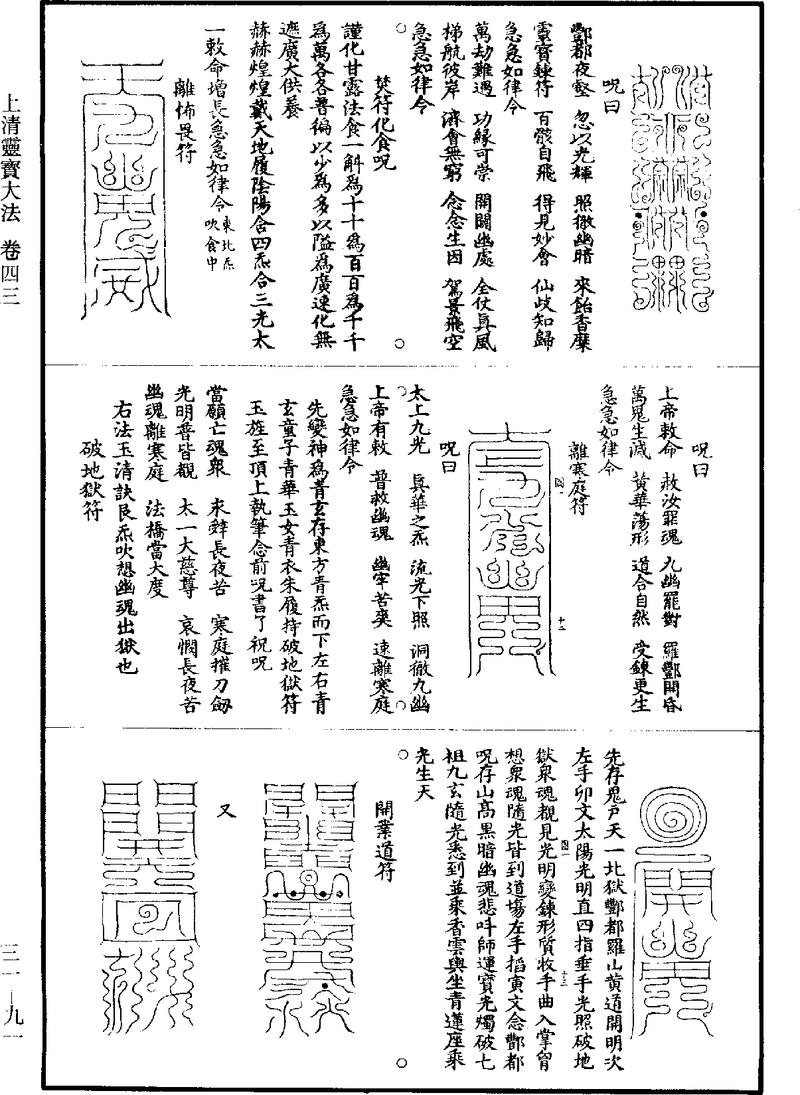 上清靈寶大法 卷四三
三一—九一
呪曰
酆都夜壑 忽以光輝 照徹幽暗 來飴香糜
靈寶鍊符 百骸自飛 得見妙會 仙歧知歸
急急如律令
萬劫難遇 功緣可崇 開闢幽處 全仗真風
梯航彼岸 濟會無窮 念念生因 駕景飛空
急急如律令
焚符化食呪
謹化甘露法食一斛為十十為百百為千千
為萬各各普徧以少為多以隘為廣速化無
遮廣大供養
赫赫煌煌戴天地履陰陽含四炁合三光太
一敕命增長急急如律令東北炁吹食中
離怖畏符
呪曰
上帝敕命 救汝罪魂 九幽罷對 羅酆開昏
萬鬼生滅 黃華蕩形 道合自然 受鍊更生
急急如律令
離寒庭符
圖一
十二
呪曰
太上九光 真華之炁 流光下照 洞徹九幽
上帝有敕 普救幽魂 幽牢苦爽 速離寒庭
急急如律令
先變神為青玄存東方青炁而下左右青
玄童子青華玉女青衣朱履持破地獄符
玉旌至頂上執筆念前呪書了祝呪
當願亡魂衆 永辭長夜苦 寒庭摧刀劔
光明普皆覩 太一大慈尊 哀憫長夜苦
幽魂離寒庭 法橋當大度
右法玉清訣艮炁吹想幽魂出獄也
破地獄符
先存鬼戶天一北獄酆都羅山黃道開明次
左手卯文太陽光明直四指垂手光照破地
獄衆魂覩見光明變鍊形質收手曲入掌胷
想衆魂隨光皆到道場左手掐寅文念酆都
呪存山高黑暗幽魂悲叫師運寶光燭破七
祖九玄隨光悉到並乘香雲輿坐青蓮座乘
光生天
圖一
十三
開業道符
又